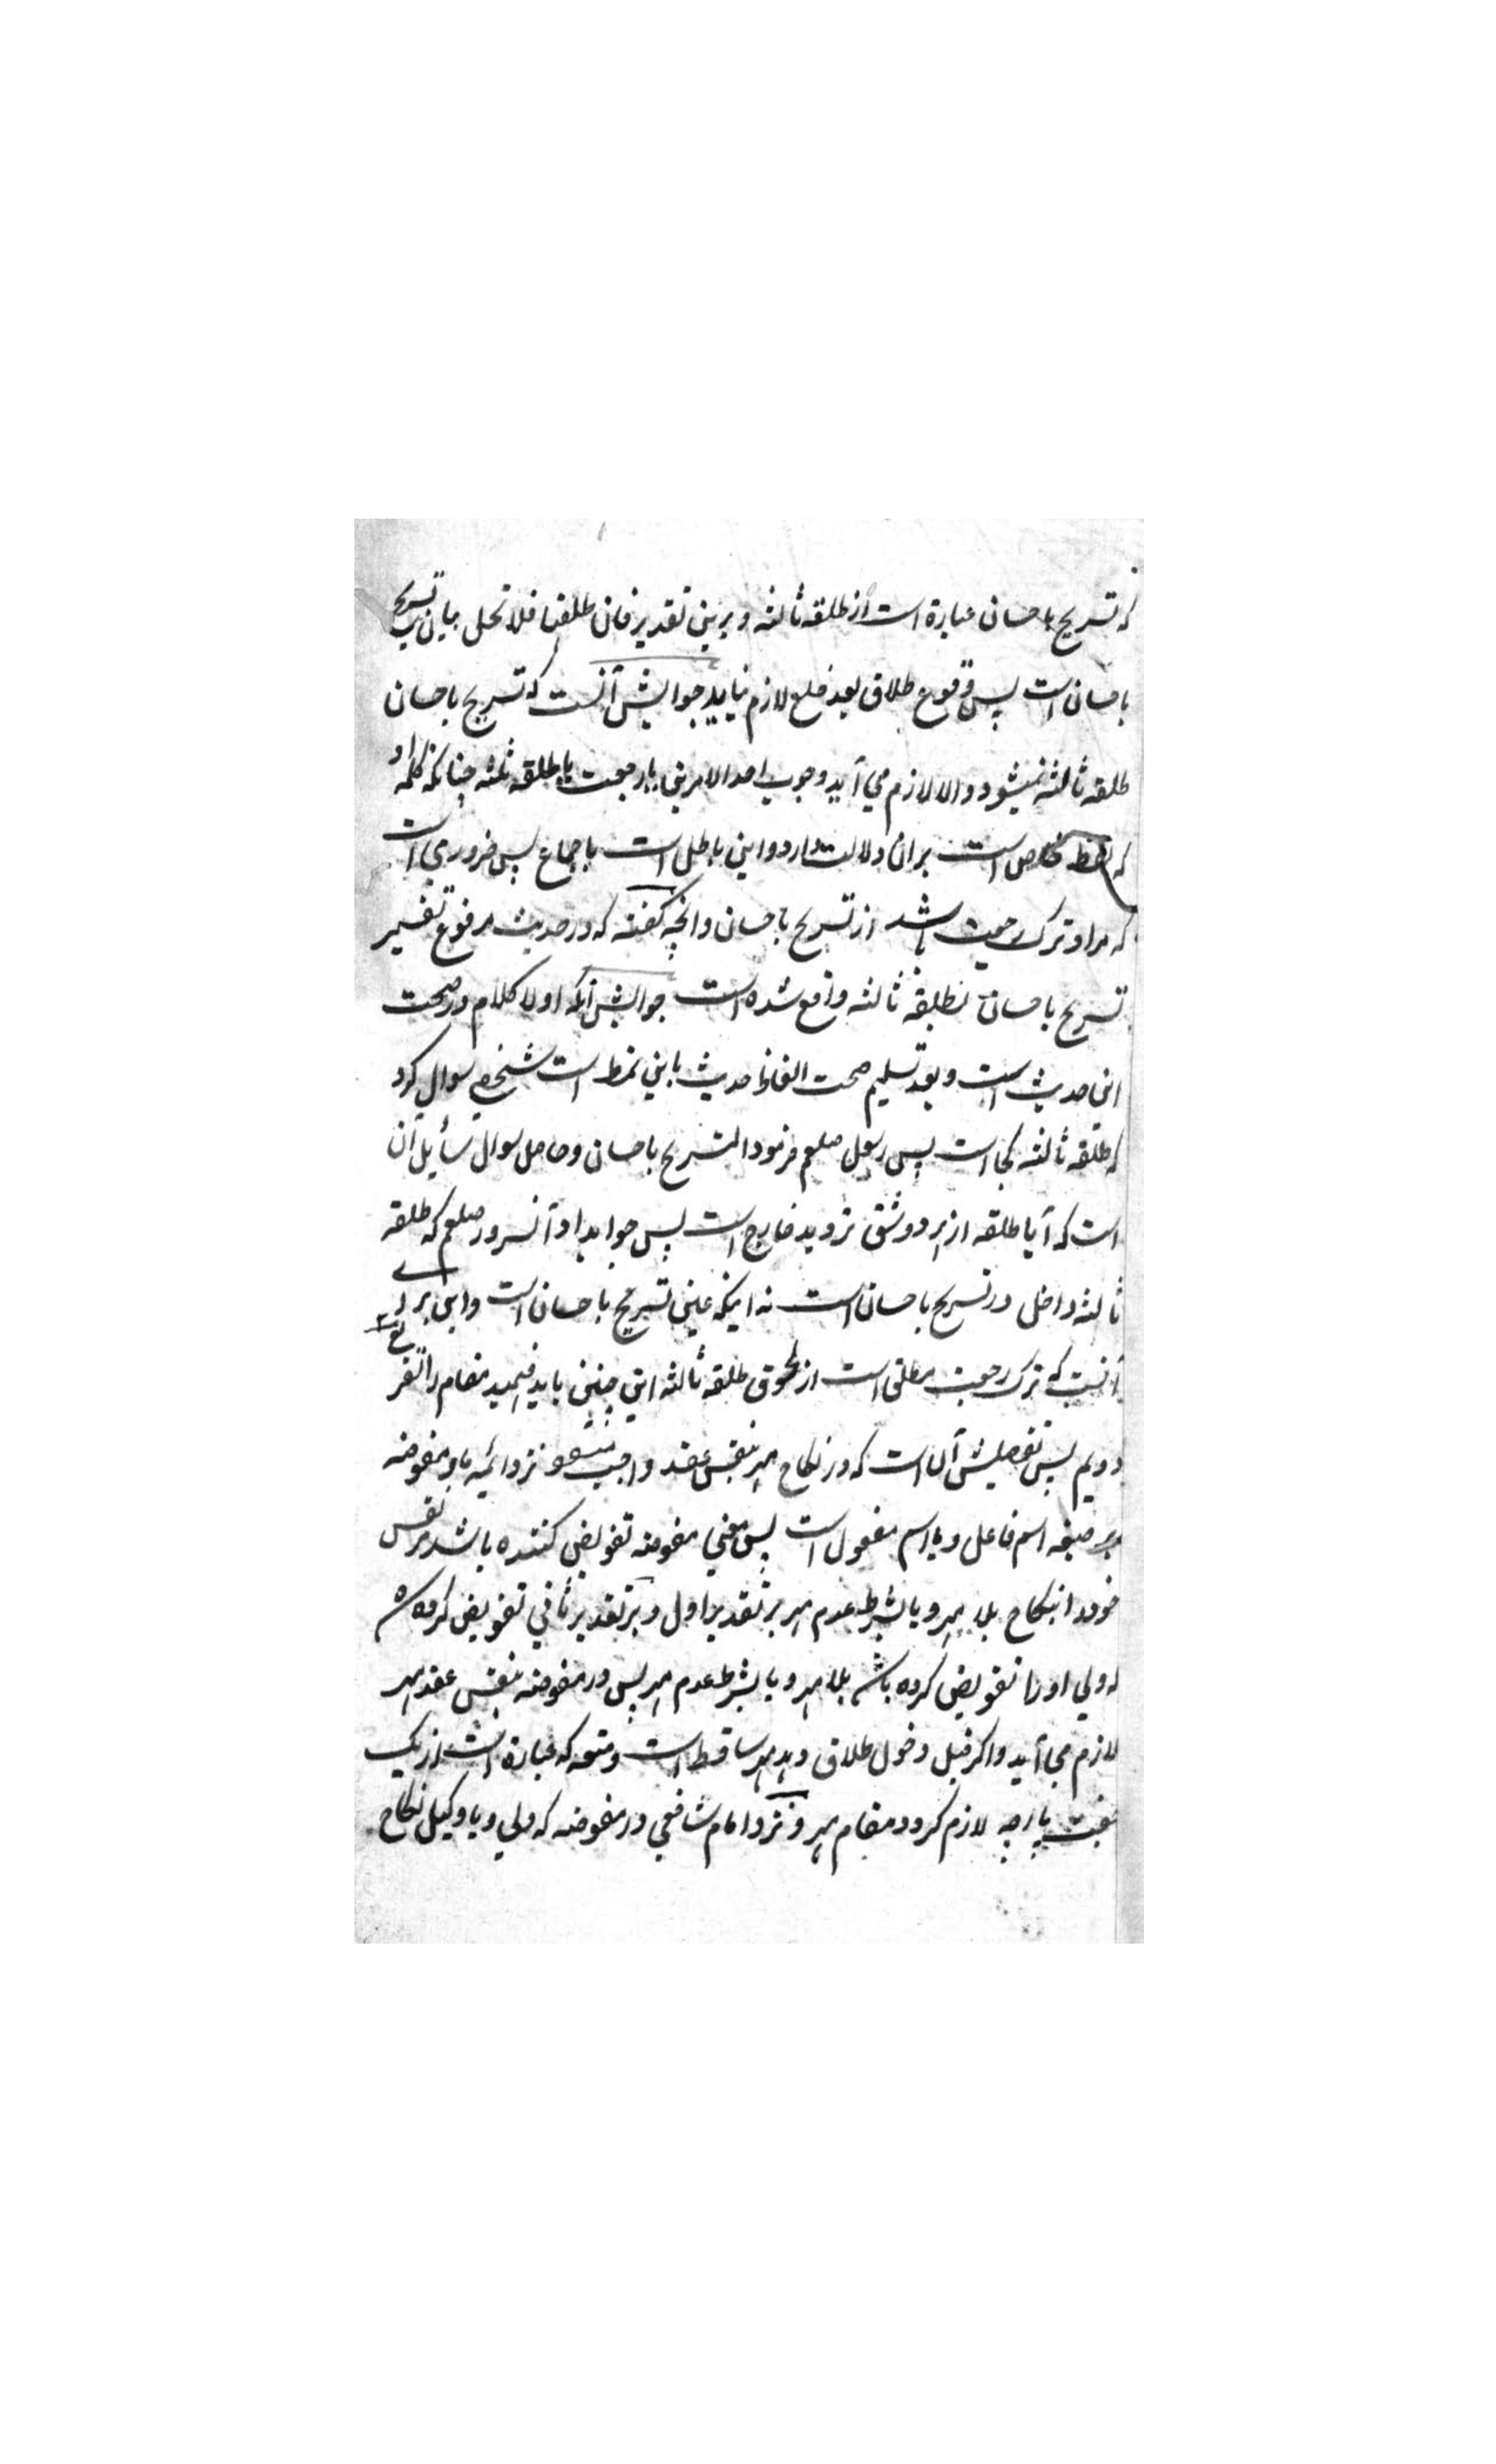 که تسریح باحسان عبارة است از طلقه ثالثه و برین تقدیر فان طلقها فلا تحل بیان تسریح
باحسان است پس وقوع طلاق بعد خلع لازم نیاید جوابش آنست که تسریح باحسان
طلقه ثالثه نمیشود والا لازم می آید وجوب احد الامرین یا رجعت یا طلقه ثلثه چنانکه کلمه او
که لفظ خاص است بران دلالت دارد و این باطل است باجماع پس ضروری است
که مراد ترک رجعت باشد از تسریح باحسان و انچه گفته که در حدیث مرفوع تفسیر
تسریح باحسان بطلقه ثالثه واقع شده است جوابش آنکه اولا کلام در صحت
این حدیث است و بعد تسلیم صحت الفاظ حدیث باین نمط است شخصی سوال کرد
که طلقه ثالثه کجا است پس رسول صلعم فرمود التسریح باحسان و حاصل سوال سأیل آن
است که آیا طلقه از هر دو شق تردید خارج است پس جواب داد آنسرور صلعم که طلقه
ثالثه داخل در تسریح باحسان است نه اینکه عین تسریح باحسان است و این برای
آنست که ترک رجعت مطلق است از لحوق طلقه ثالثه این چنین باید فهمید مقام را تفریع
دویم پس تفصیلش آن است که در نکاح مهر بنفس عقد واجب میشود نزد ائمه ما و مفوضه
بر صیغه اسم فاعل و یا اسم مفعول است پس معنی مفوضه تفویض کننده باشد مر نفس
خود را بنکاح بلا مهر و یا بشرط عدم مهر بر تقدیر اول و بر تقدیر ثانی تفویض کرده شده
که ولی او را تفویض کرده باشد بلا مهر و یا بشرط عدم مهر پس در مفوضه بنفس عقد مهر
لازم می آید و اگر قبل دخول طلاق دهد مهر ساقط است و متعه که عبارة است از یک
جفت پارچه لازم گردد مقام مهر و نزد امام شافعی در مفوضه که ولی و یا وکیل نکاح